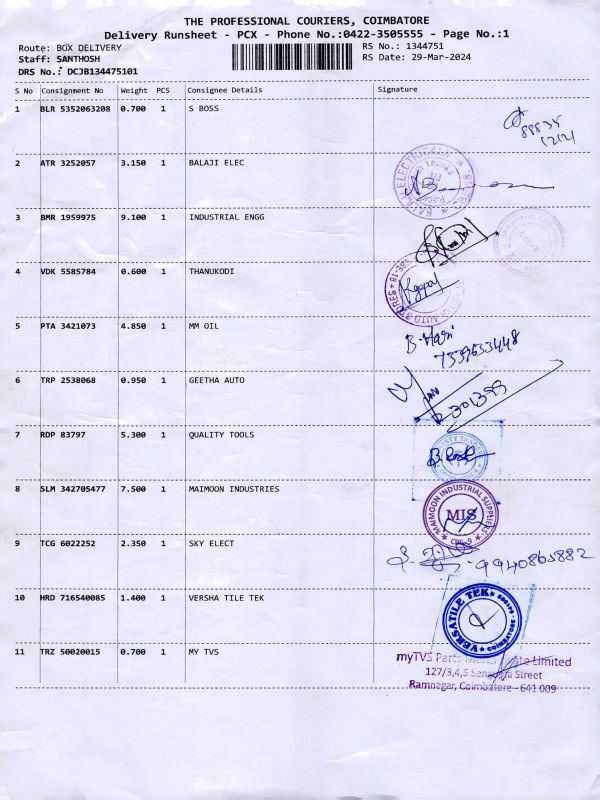 THE PROFESSIONAL COURIERS, COIMBATORE
Delivery Runsheet - PCX - Phone No.:0422-3505555 - Page No.:1
Route: BOX DELIVERY
RS No.: 1344751
Staff: SANTHOSH
RS Date: 29-Mar-2024
DRS No.: DCJB134475101
S No Consignment No Weight PCS Consignee Details Signature
1 BLR 5352063208 0.700 1 S BOSS
88834
12121
2 ATR 3252057 3.150 1 BALAJI ELEC
3 BMR 1959975 9.100 1 INDUSTRIAL ENGG
4 VDK 5585784 0.600 1 THANUKODI
5 PTA 3421073 4.850 1 MM OIL
B. Hari
6 TRP 2538068 0.950 1 GEETHA AUTO
7 RDP 83797 5.300 1 QUALITY TOOLS
8 SLM 342705477 7.500 1 MAIMOON INDUSTRIES
MAIMOON INDUSTRIAL SUPPLIERS
MIS
9 TCG 6022252 2.350 1 SKY ELECT
9940863882
10 HRD 716540085 1.400 1 VERSHA TILE TEK
VERSATILE TEK
COIMBATORE
11 TRZ 50020015 0.700 1 MY TVS
myTVS Parts Limited
127/3,4,5 Street
Ramnagar, Coimbatore - 641 009